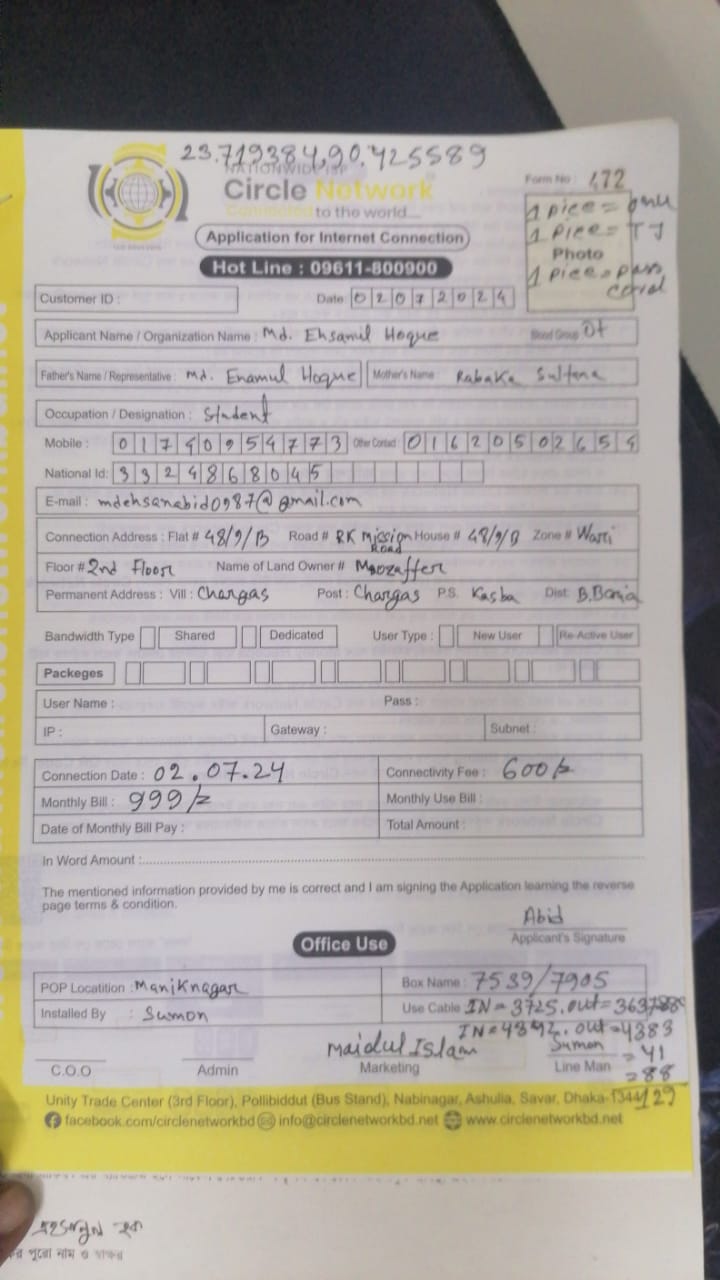 23.719384,90.425589
NATIONWIDE ISP
Circle Network
Connected to the world...
Form No : 472
1 piece =
1 piece = TJ
Photo
1 piece =
Application for Internet Connection
Hot Line : 09611-800900
Customer ID : Date: 02072024
Applicant Name / Organization Name : Md. Ehsanul Hoque Blood Group O+
Father's Name / Representative : Md. Enamul Hoque Mother's Name : Rabaka Sultana
Occupation / Designation : Student
Mobile : 01740954773 Other Contact : 01620502654
National Id: 3324868045
E-mail : mdehsanabid0987@gmail.com
Connection Address : Flat # 48/9/B Road # RK Mission Road House # 48/9/B Zone # Wari
Floor # 2nd Floor Name of Land Owner # Mozaffer
Permanent Address : Vill : Chargas Post : Chargas P.S. Kasba Dist: B.Baria
Bandwidth Type Shared Dedicated User Type : New User Re-Active User
Packeges
User Name : Pass :
IP : Gateway : Subnet :
Connection Date : 02.07.24 Connectivity Fee : 600/=
Monthly Bill : 999/= Monthly Use Bill :
Date of Monthly Bill Pay : Total Amount :
In Word Amount :
The mentioned information provided by me is correct and I am signing the Application learning the reverse
page terms & condition.
Abid
Applicant's Signature
Office Use
POP Locatition : Maniknagar Box Name : 7539/7905
Installed By : Sumon Use Cable IN = 3725, out = 3637
IN = 4342, out = 4383
Maidul Islam Sumon = 41
C.O.O Admin Marketing Line Man = 88
129
Unity Trade Center (3rd Floor), Pollibiddut (Bus Stand), Nabinagar, Ashulia, Savar, Dhaka-1344
facebook.com/circlenetworkbd info@circlenetworkbd.net www.circlenetworkbd.net
এহসানুল হক
পুরো নাম ও স্বাক্ষর